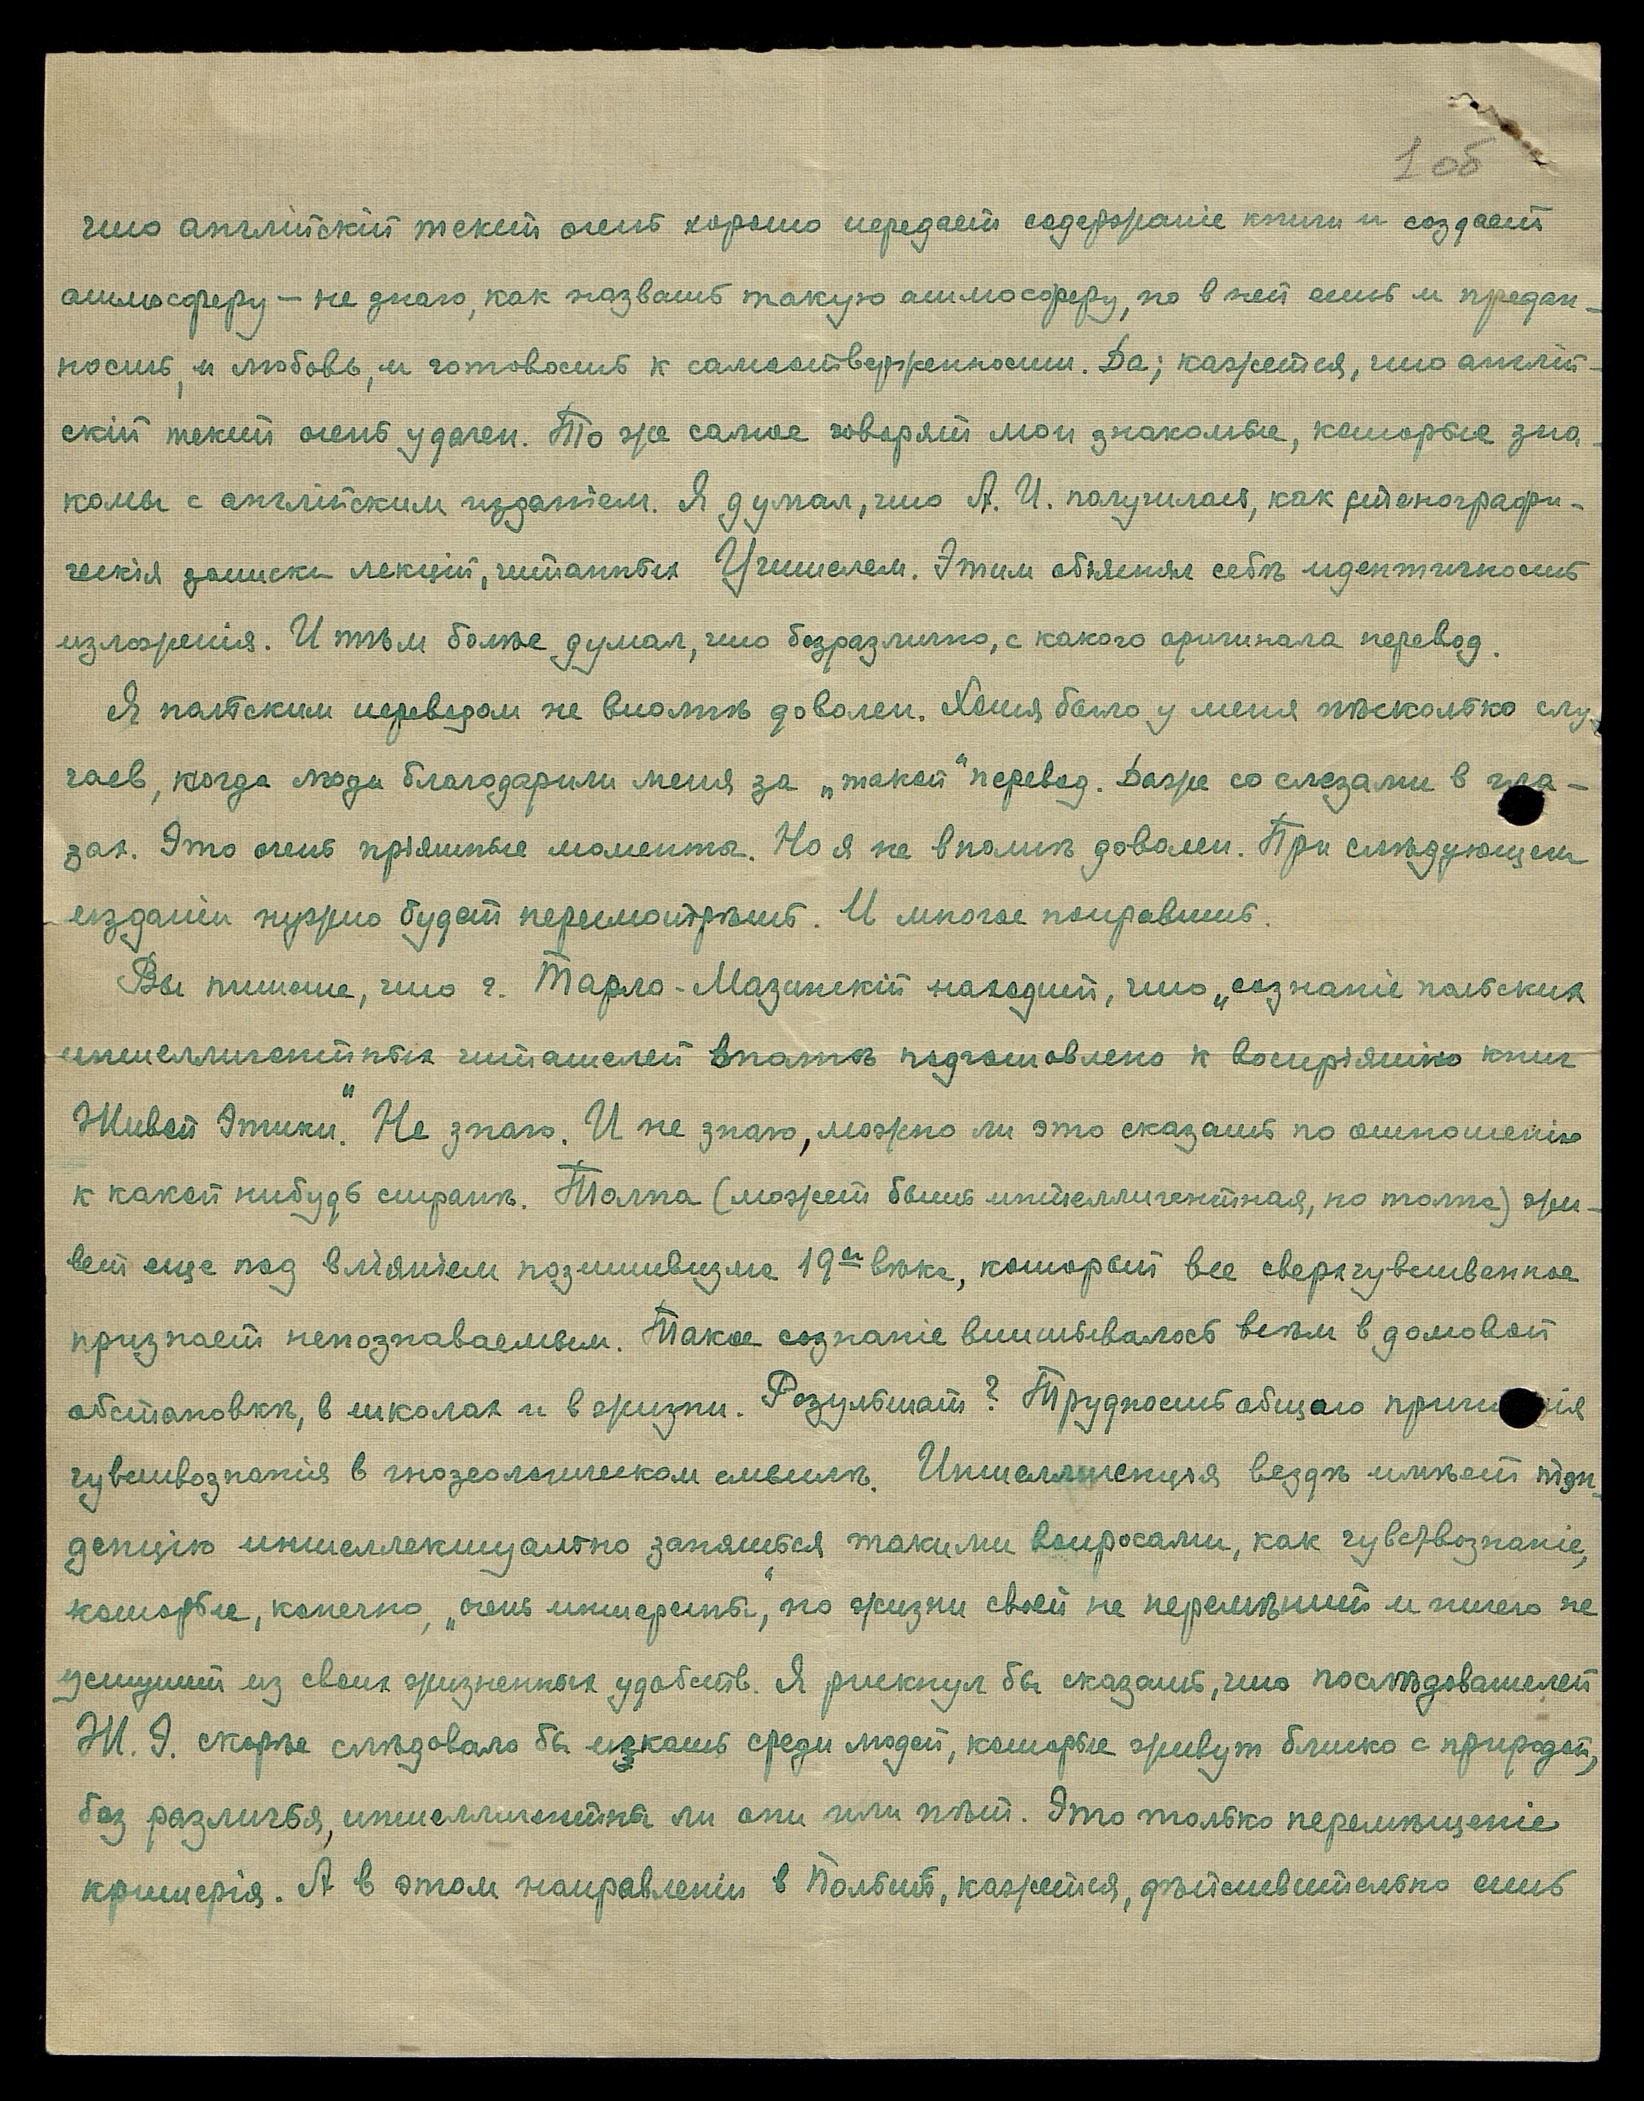 1 об
что англійскій текст очень хорошо передает содержаніе книги и создает
атмосферу — не знаю, как назвать такую атмосферу, но в ней есть и предан-
ность, и любовь, и готовость к самоотверженности. Да; кажется, что англій-
скій текст очень удачен. То же самое говорят мои знакомые, которые зна-
комы с англійским изданіем. Я думал, что А. И. получилась, как стенографи-
ческія записки лекцій, читанных Учителем. Этим объяснял себѣ идентичность
изложенія. И тѣм болѣе думал, что безразлично, с какого оригинала перевод.
Я польским переводом не вполнѣ доволен. Хотя было у меня нѣсколько слу-
чаев, когда люди благодарили меня за „такой" перевод. Даже со слезами в гла-
зах. Это очень пріятные моменты. Но я не вполнѣ доволен. При слѣдующем
изданіи нужно будет пересмотрѣть. И многое поправить.
Вы пишете, что г. Тарло-Мазинскій находит, что „сознаніе польских
интеллигентных читателей вполнѣ подготовлено к воспріятію книг
Живой Этики." Не знаю. И не знаю, можно ли это сказать по отношенію
к какой нибудь странѣ. Толпа (может быть интеллигентная, но толпа) жи-
вет еще под вліяніем позитивизма 19го вѣка, который все сверхчувственное
признает непознаваемым. Такое сознаніе впитывалось всѣм в домовой
обстановкѣ, в школах и в жизни. Результат? Трудность общаго при ія
чувствознанія в гнозеологическом смыслѣ. Интеллигенція вездѣ имѣет тен-
денцію интеллектуально заняться такими вопросами, как чувствознаніе,
которые, конечно, „очень интересны", но жизни своей не перемѣнит и ничего не
уступит из своих жизненных удобств. Я рискнул бы сказать, что послѣдователей
Ж. Э. скорѣе слѣдовало бы искать среди людей, которые живут близко с природой,
без различья, интеллигентны ли они или нѣт. Это только перемѣщеніе
критерія. А в этом направленіи в Польшѣ, кажется, дѣйствительно есть